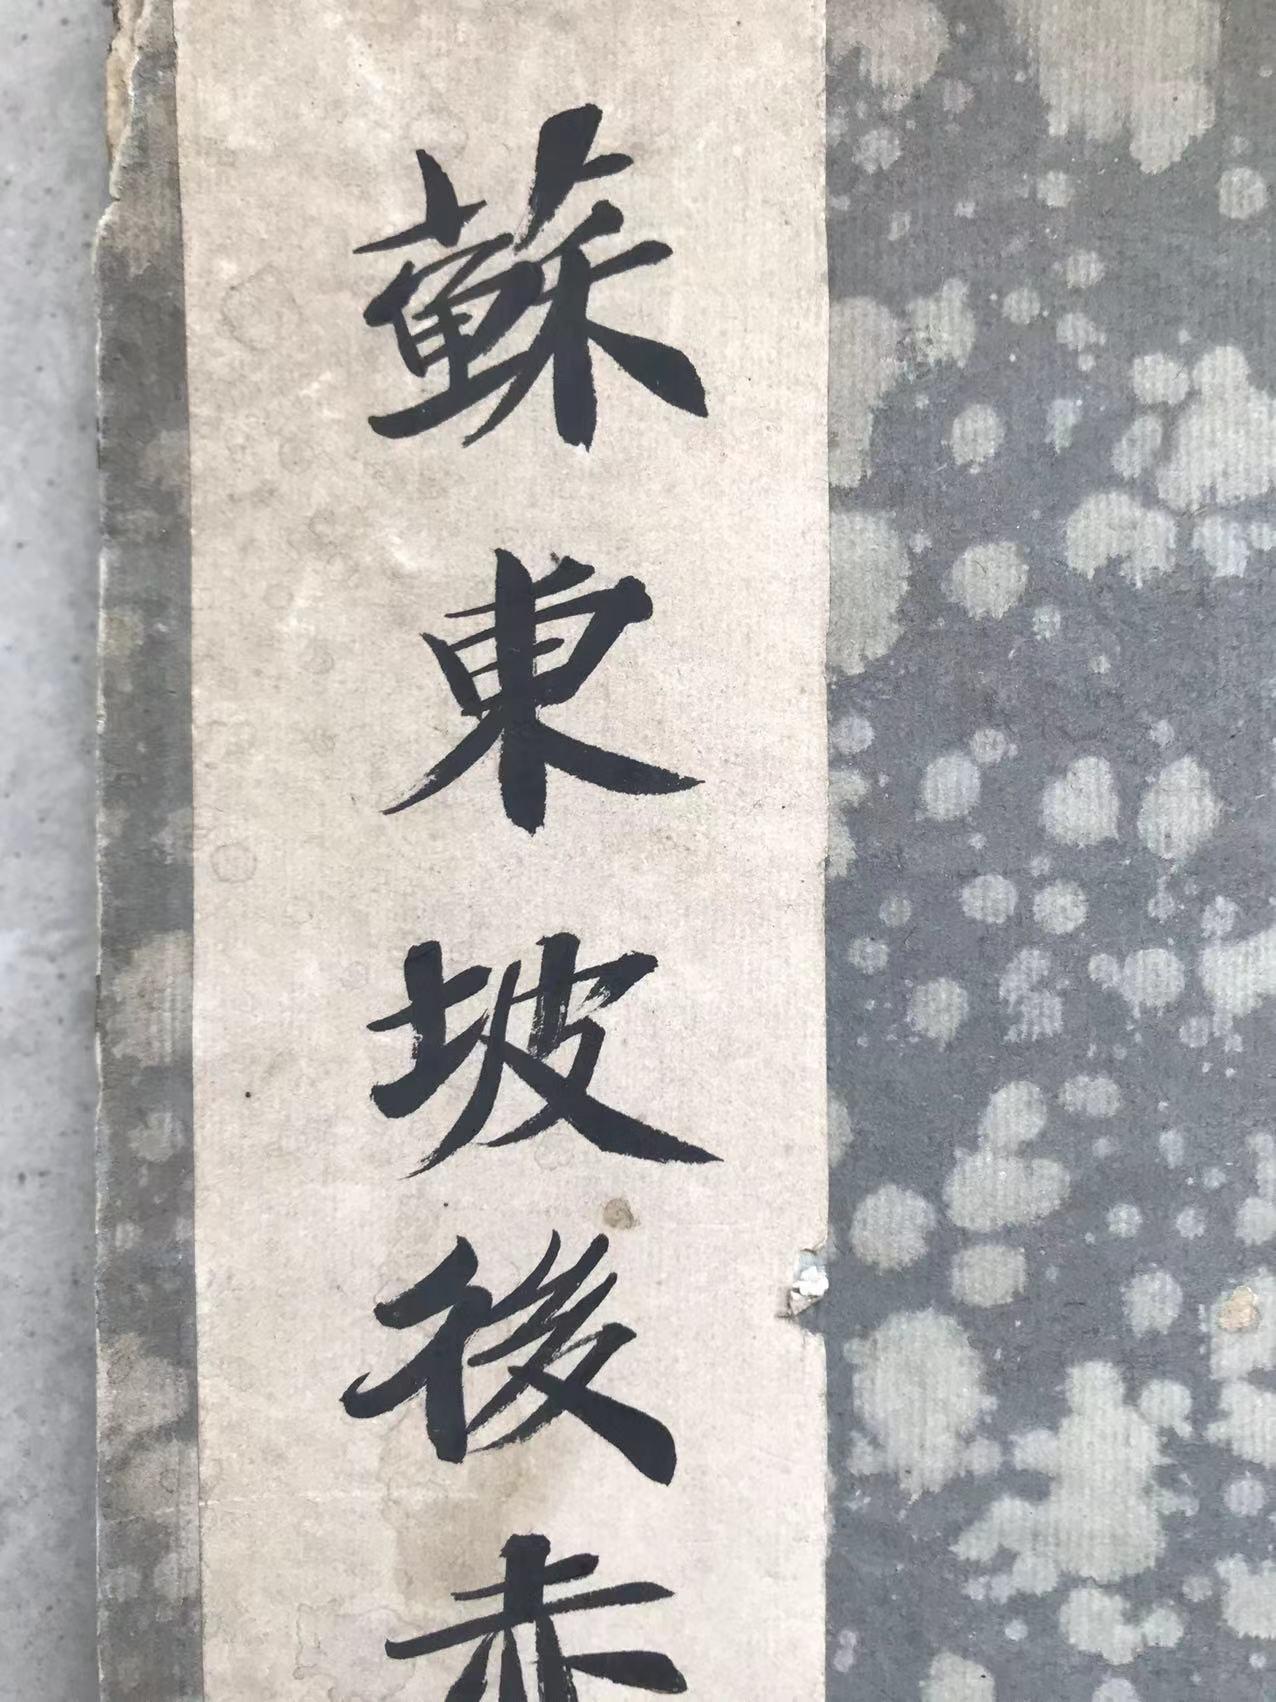 蘇東坡後赤